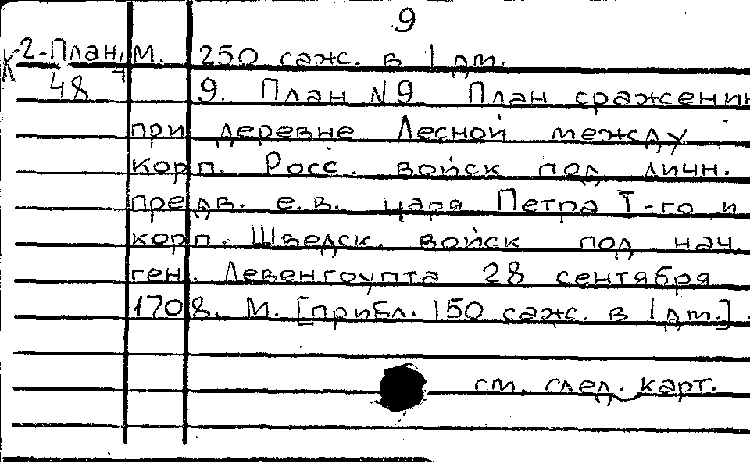 9
К 2-План, М. 250 саж. в 1 дм.
48 9. План N9 План сражения
при деревне Лесной между
корп. Росс. войск под личн.
предв. е.в. царя Петра I-го и
корп. Шведск. войск под нач.
ген. Левенгоупта 28 сентября
1708. М. [прибл. 150 саж. в 1 дм.].
см. след. карт.